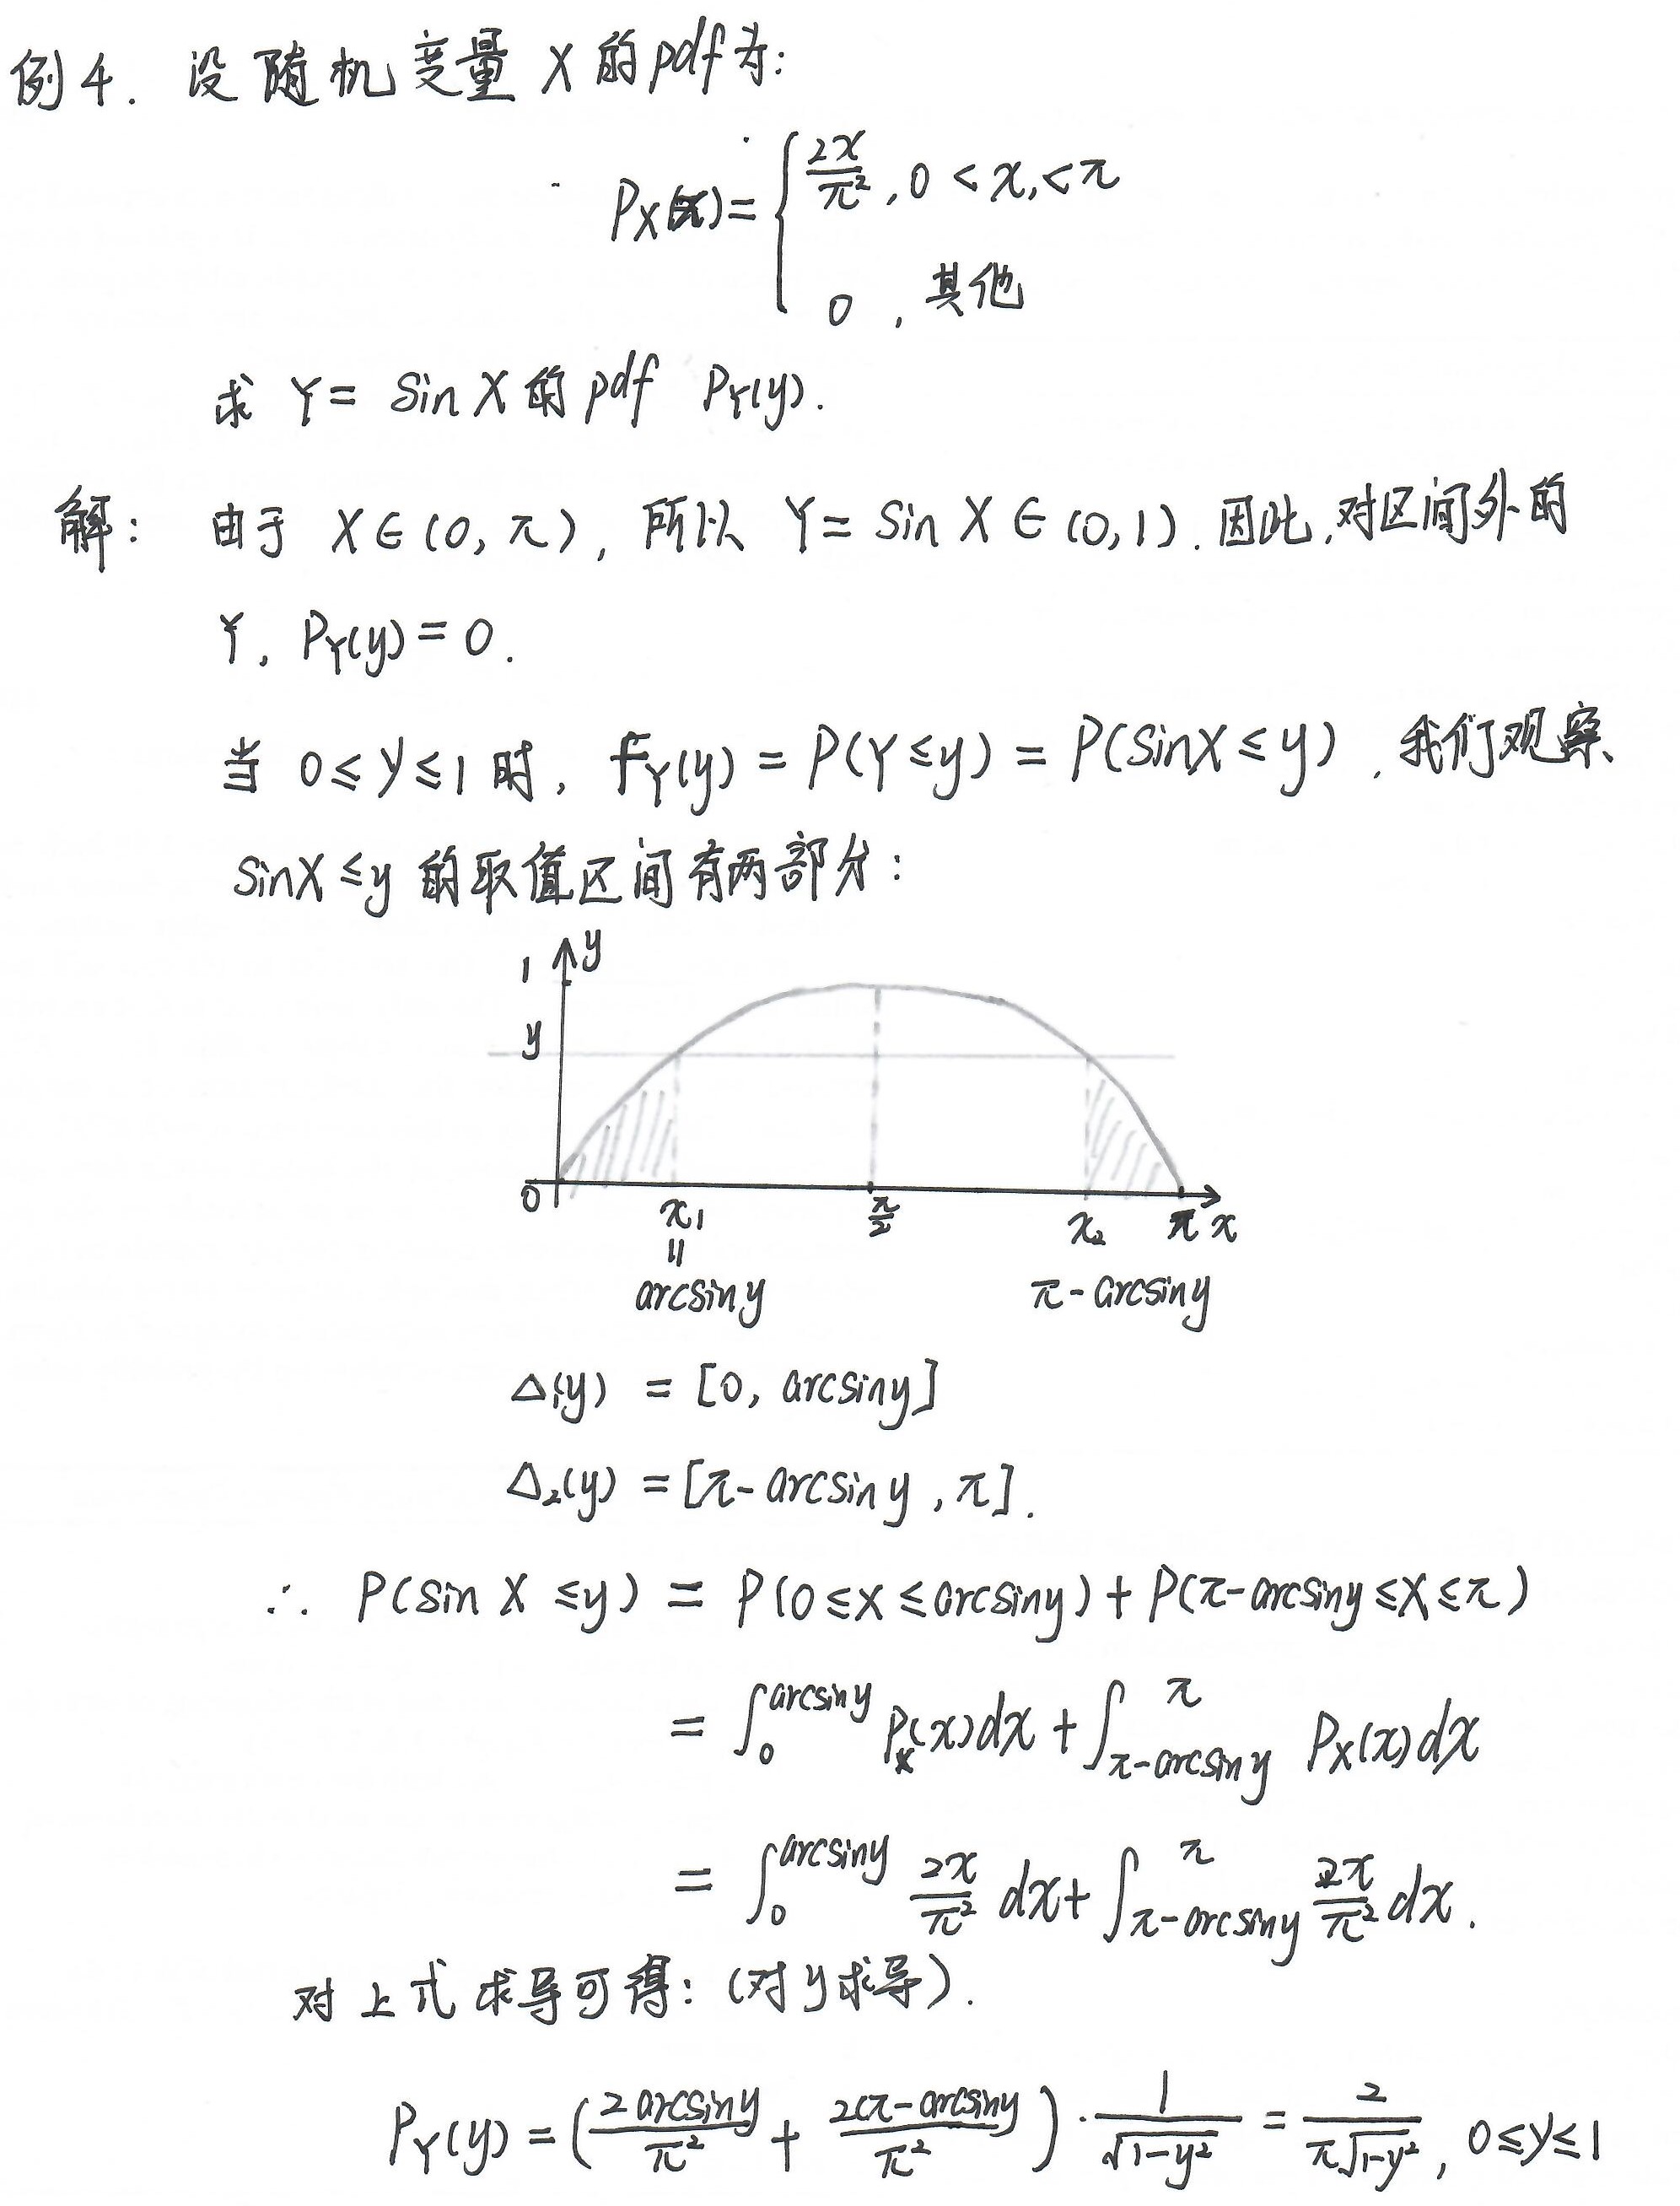 例4. 设随机变量 X 的pdf为:
P_X(x) = { 2x/π², 0 < x < π
0 , 其他
求 Y = sin X 的 pdf P_Y(y).
解: 由于 X ∈ (0, π), 所以 Y = sin X ∈ (0,1). 因此,对区间外的
Y, P_Y(y) = 0.
当 0 ≤ y ≤ 1 时, F_Y(y) = P(Y ≤ y) = P(sinX ≤ y), 我们观察
sinX ≤ y 的取值区间有两部分:
1 y
y
0 x₁ π/2 x₂ π x
=
arcsiny π - arcsiny
Δ₁(y) = [0, arcsiny]
Δ₂(y) = [π - arcsiny, π].
∴ P(sin X ≤ y) = P(0 ≤ X ≤ arcsiny) + P(π - arcsiny ≤ X ≤ π)
= ∫₀^{arcsiny} P_X(x)dx + ∫_{π-arcsiny}^{π} P_X(x)dx
= ∫₀^{arcsiny} 2x/π² dx + ∫_{π-arcsiny}^{π} 2x/π² dx.
对上式求导可得: (对y求导).
P_Y(y) = (2arcsiny/π² + 2(π-arcsiny/π²) · 1/√(1-y²) = 2/(π√(1-y²)), 0 ≤ y ≤ 1